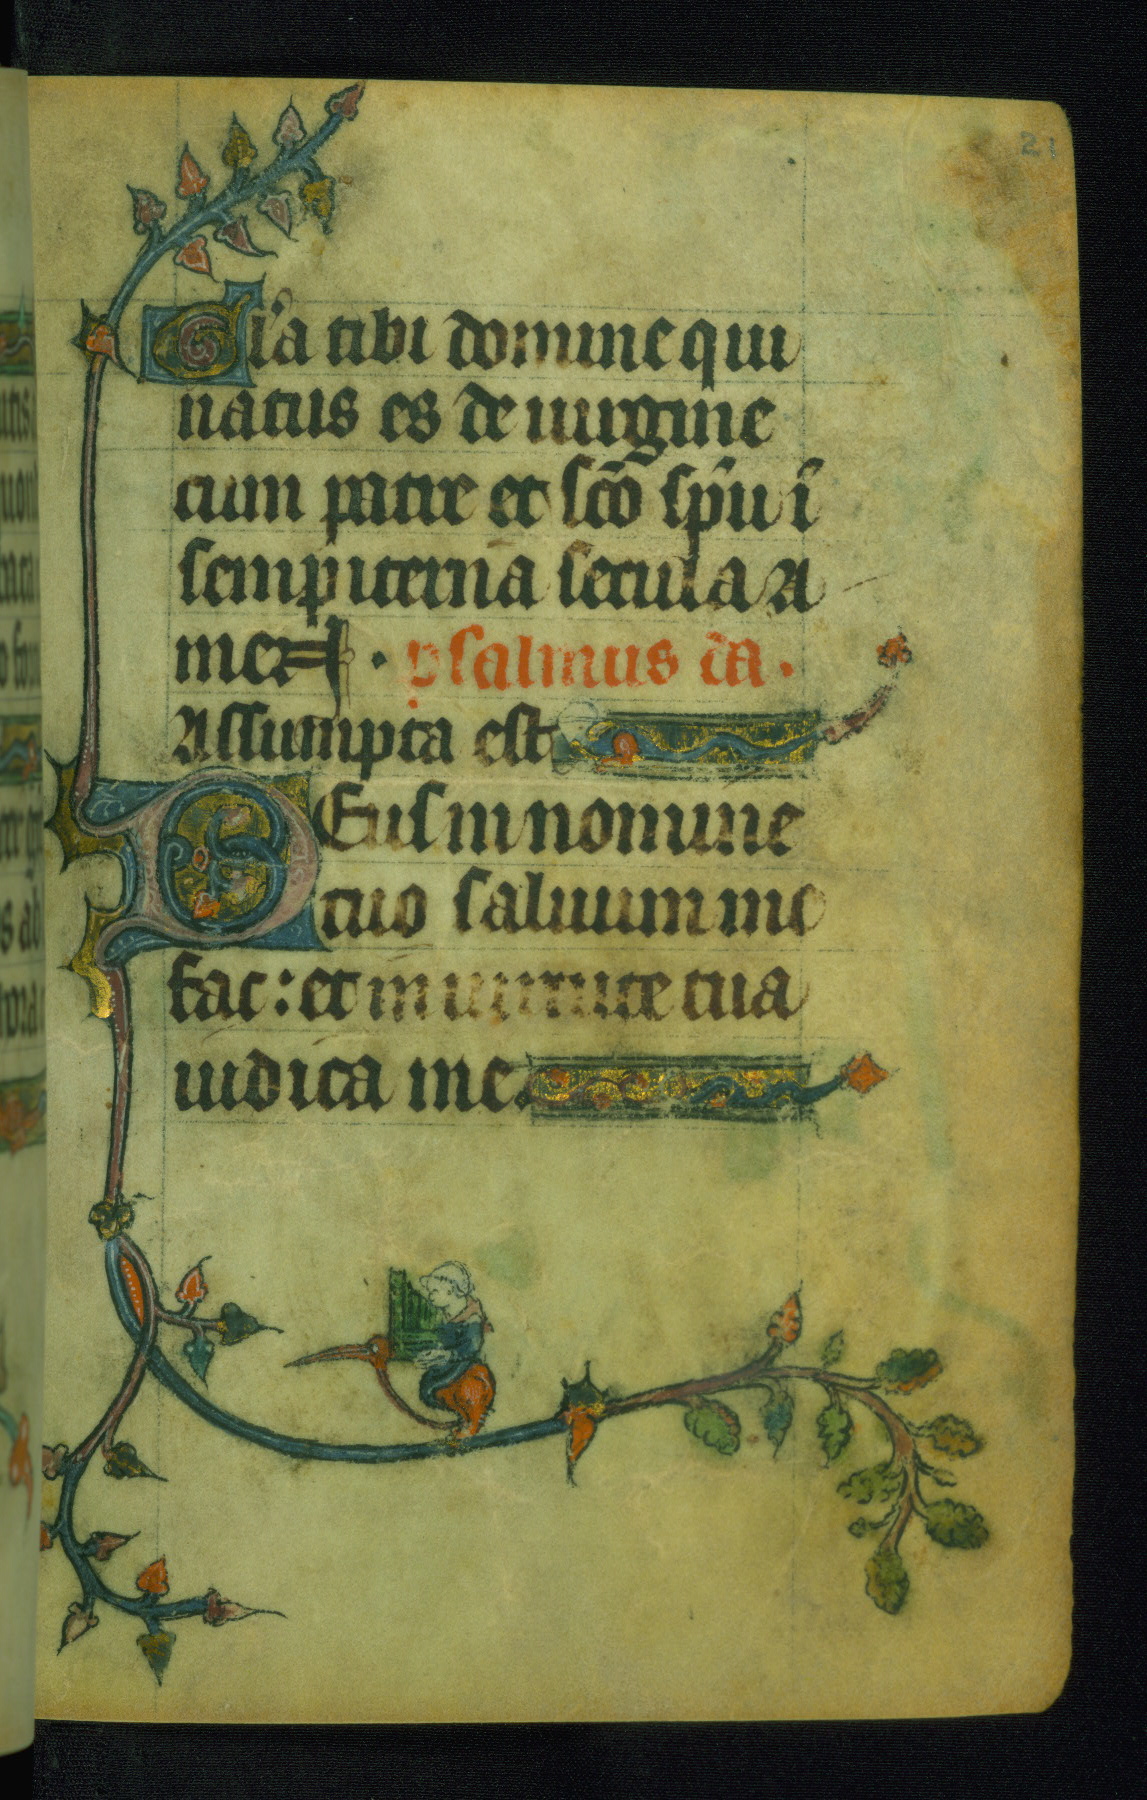 21
Gl'a tibi domine qui
natus es de uirgine
cum patre et sc̄o sp̄u ī
sempiterna secula A
men · psalmus dā ·
Assumpta est
DEus in nomine
tuo saluum me
fac: et in uirtute tua
iudica me.